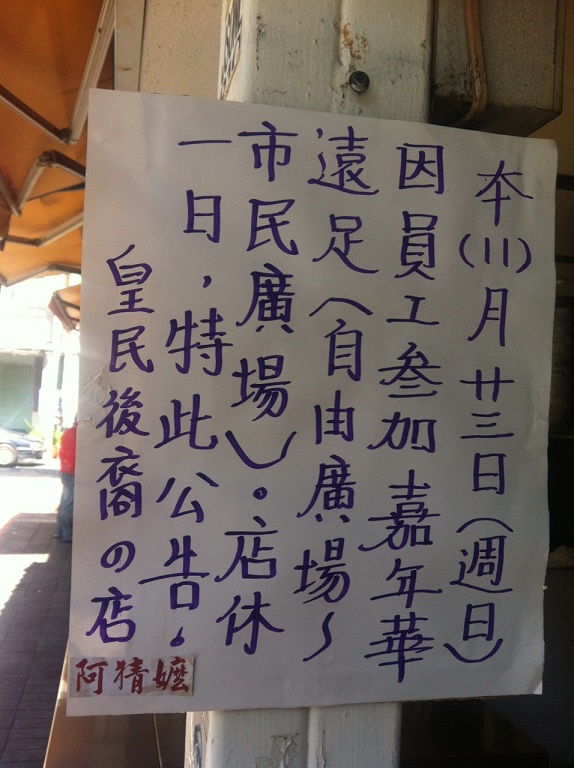 本(11)月廿三日(週日)
因員工叁加嘉年華
遠足(自由廣場~
市民廣場)。店休
一日,特此公告。
皇民後裔の店
阿精嬤